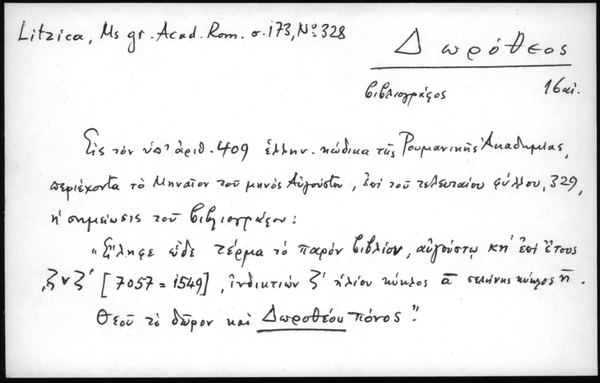 Litzica, Ms gr. Acad. Rom. σ. 173, Nο 328
Δωρόθεος
βιβλιογράφος 16 αἰ.
Εἰς τὸν ὑπ' ἀριθ. 409 ἑλλην. κώδικα τῆς Ρουμανικῆς Ἀκαδημίας,
περιέχοντα τὸ Μηναῖον τοῦ μηνὸς Αὐγούστου, ἐπὶ τοῦ τελευταίου φύλλου, 329,
ἡ σημείωσις τοῦ βιβλιογράφου:
"Εἴληφε ὧδε τέρμα τὸ παρὸν βιβλίον, αὐγούστῳ κη' ἐπὶ ἔτους
,ζνζ' [7057 = 1549], ἰνδικτιών ζ' ἡλίου κύκλος α σελήνης κύκλος η.
Θεοῦ τὸ δῶρον καὶ Δωροθέου πόνος".